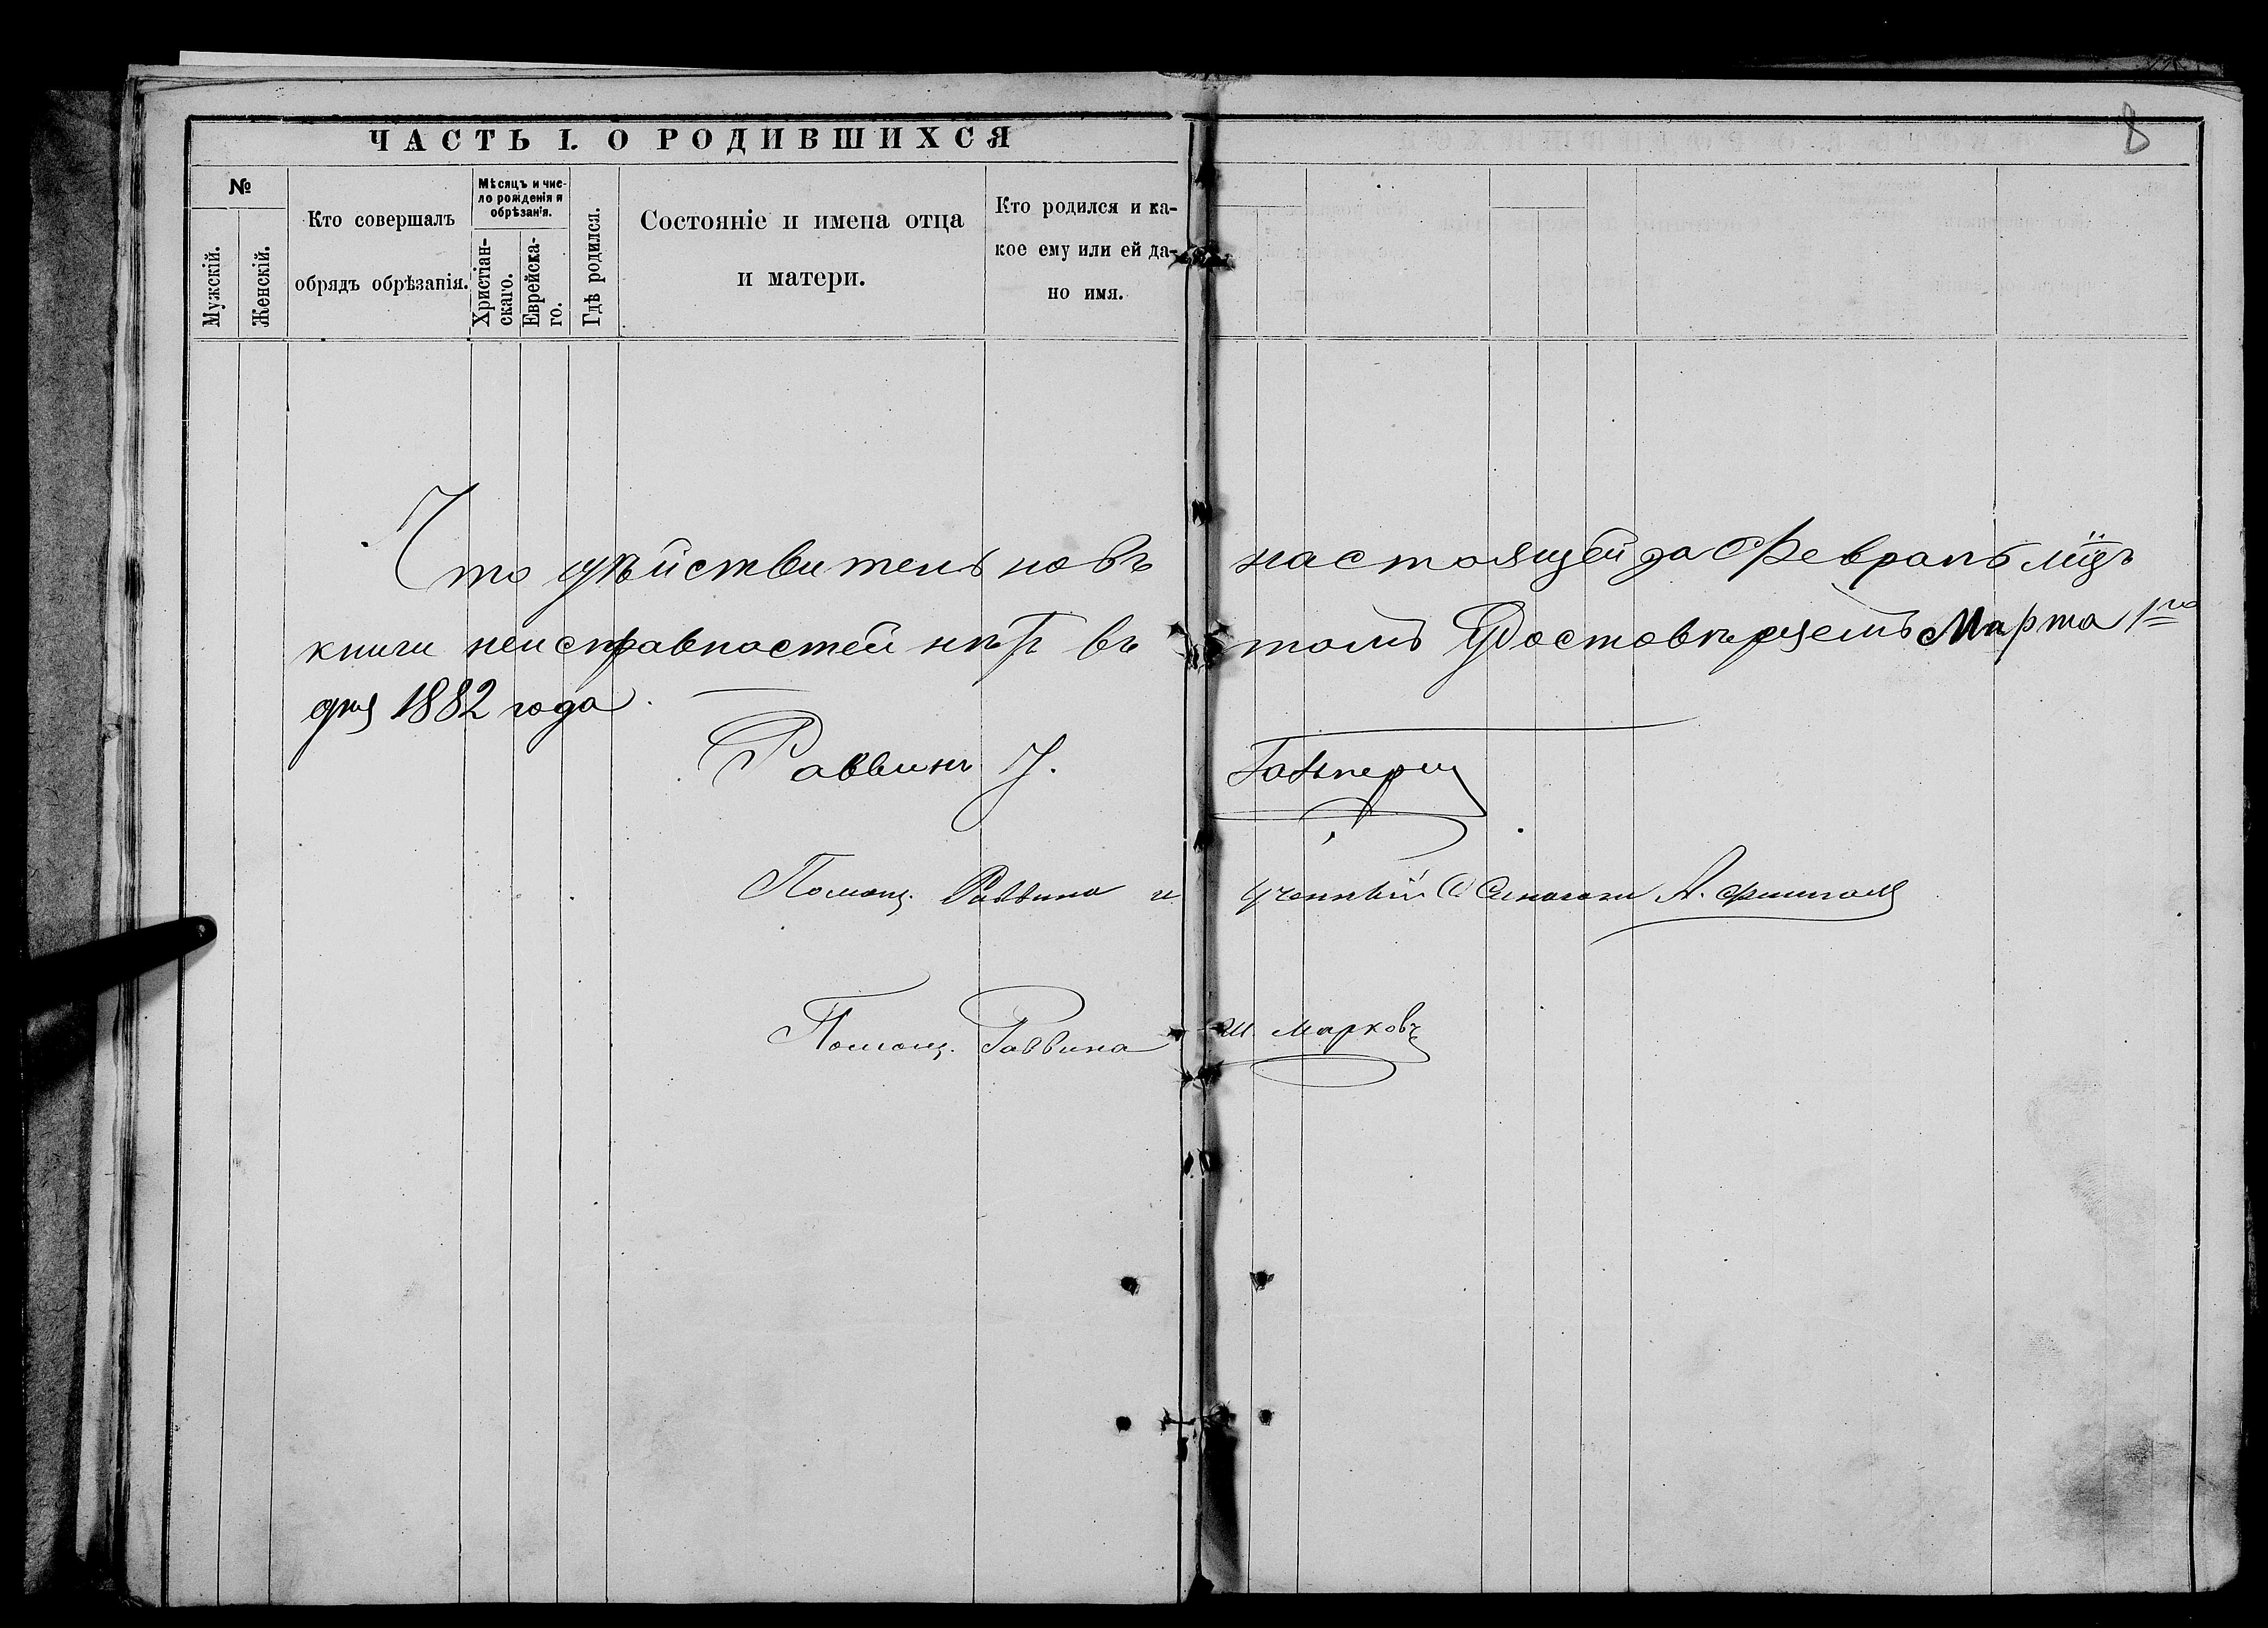 ЧАСТЬ I. О РОДИВШИХСЯ
8
№
Мужскій.
Женскій.
Кто совершалъ
обрядъ обрѣзанія.
Мѣсяцъ и чис-
ло рожденія и
обрѣзанія.
Христіан-
скаго.
Еврейска-
го.
Гдѣ родился.
Состояніе и имена отца
и матери.
Кто родился и ка-
кое ему или ей да-
но имя.
Что дѣйствительно въ настоящей за Февраль мцъ
книги неисправностей нѣтъ въ томъ Удостовѣряемъ Марта 1го
дня 1882 года.
Раввинъ І. Гальперин
Помощ. Раввина и ученный Синагоги А.
Помощ. Раввина Ш. Марковъ